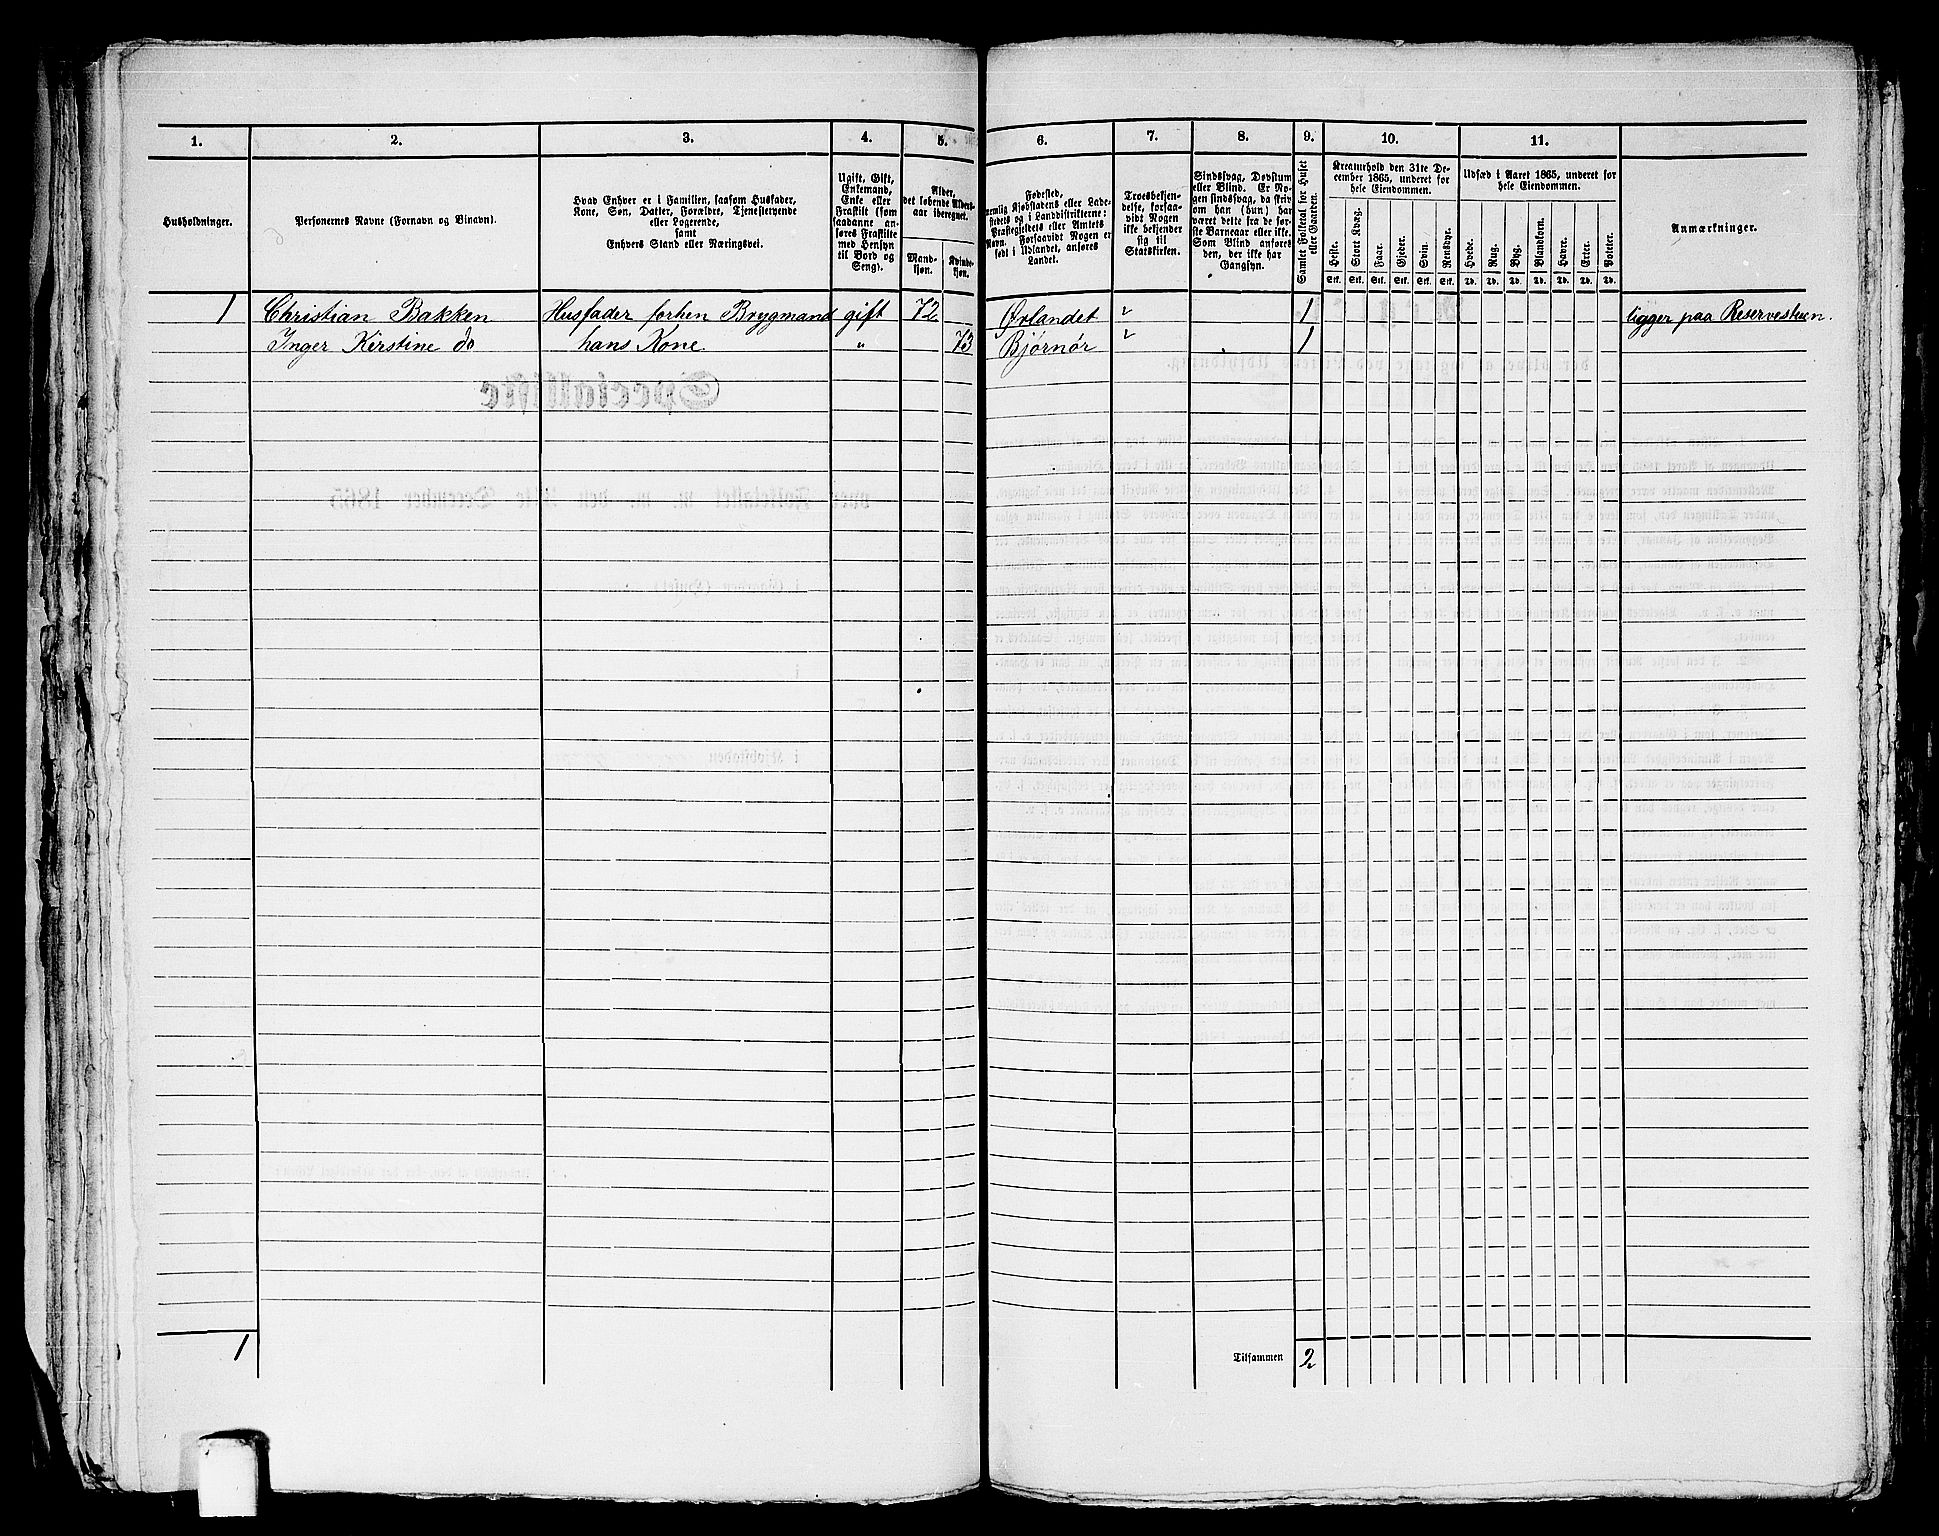 1. 2. 3. 4. 5. 6. 7. 8. 9. 10. 11.
Husholdninger.
Personernes Navne (Fornavn og Binavn).
Hvad Enhver er i Familien, saasom Husfader,
Kone, Søn, Datter, Forældre, Tjenestetyende
eller Logerende,
samt
Enhvers Stand eller Næringsvei.
Ugift, Gift,
Enkemand,
Enke eller
Fraskilt (som
saadanne an-
føres Fraskilte
med Hensyn
til Bord og
Seng).
Alder,
det løbende Alders-
aar iberegnet.
Mand-
kjøn.
Kvinde-
kjøn.
Fødested,
nemlig Kjøbstadens eller Lade-
stedets og i Landdistrikterne:
Præstegjeldets eller Amtets
Navn. Forsaavidt Nogen er
født i Udlandet, anføres
Landet.
Troesbekjen-
delse, forsaa-
vidt Nogen
ikke bekjender
sig til
Statskirken.
Sindssvag, Døvstum
eller Blind. Er No-
gen sindssvag, da skriv
om han (hun) har
været dette fra de før-
ste Barneaar eller ikke.
Som Blind anføres
den, der ikke har
Gangsyn.
Samlet Folketal for Huset
eller Gaarden.
Kreaturhold den 31te De-
cember 1865, underet for
hele Eiendommen.
Heste. Stort Kvæg. Faar. Gjeder. Svin. Rensdyr.
Stk. Stk. Stk. Stk. Stk. Stk.
Udsæd i Aaret 1865, underet for
hele Eiendommen.
Hvede. Rug. Byg. Blandkorn. Havre. Erter. Poteter.
Td. Td. Td. Td. Td. Td. Td.
Anmærkninger.
1 Christian Bakken Husfader forhen Brygmand gift 72 Ørlandet " 1 ligger paa Reservestuen.
Inger Kirstine do hans Kone. " 73 Bjørnør " 1
1 Tilsammen 2